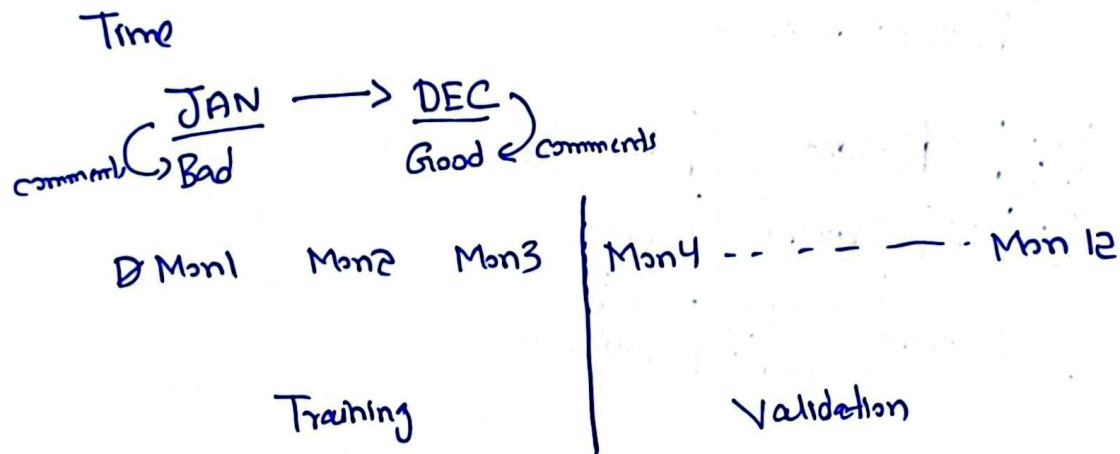 Time
JAN → DEC
comments Bad Good comments
Mon1 Mon2 Mon3 Mon4 -- - - — - Mon 12
Training Validation